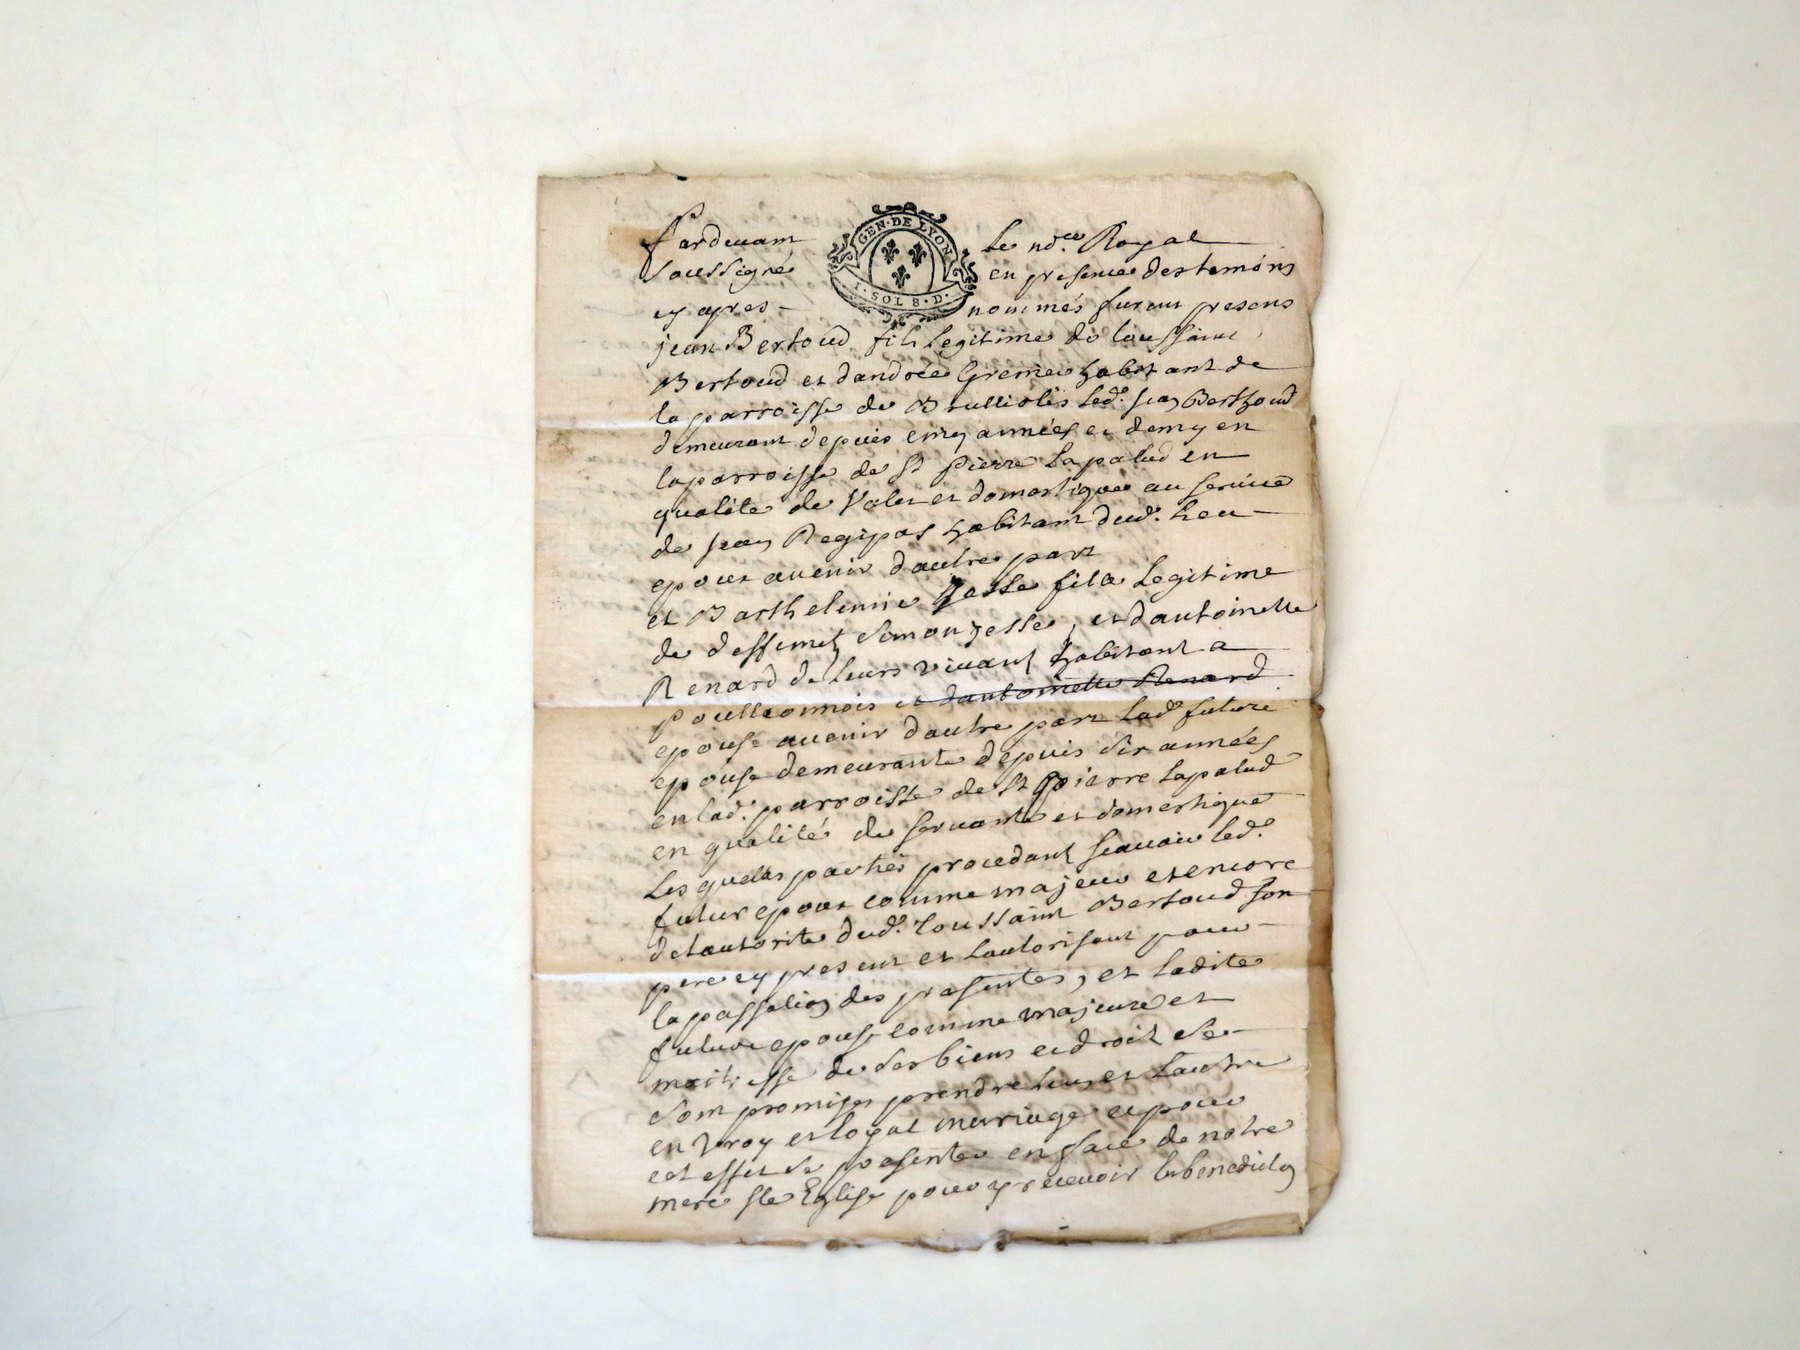 Pardeuant le nore. Royal
GEN·DE LYON
1·SOL 8·D·
soussigné en presence des temoins
cy apres nommés furent presens
jean Bertoud fils legitime de toussaint
Bertoud et dandrée habitant de
la parroisse de Brullioles led. jean Berthoud
demeurant depuis cinq années et demy en
la parroisse de St pierre lapalud en
qualité de Valet et domestique au seruice
de jean Regipas habitant dud. lieu
epoux auenir dautre part
et Barthelemie fille legitime
de deffunct Simon et dantoinette
Renard de leurs viuant habitant a
et dantoinette Renard
epouse auenir dautre part lade future
epouse demeurante depuis six années
en lad. parroisse de St pierre lapalud
en qualité de seruante et domestique
Lesquelles parties procedant scauoir led.
futur epoux comme majeur et encore
de lautorite dud. toussaint Bertoud son
pere cy present et lautorisant pour
la passation des presentes, et ladite
future epouse comme majeure et
maitresse de ses biens et droit se
sont promises prendre lun et lautre
en vray et loyal mariage et pour
cet effet se presenter en face de notre
mere ste Eglise pour y receuoir la benediction